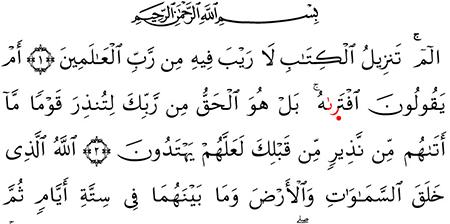 بِسْمِ ٱللَّهِ ٱلرَّحْمَٰنِ ٱلرَّحِيمِ
الٓمٓ ۚ تَنزِيلُ ٱلْكِتَٰبِ لَا رَيْبَ فِيهِ مِن رَّبِّ ٱلْعَٰلَمِينَ ﴿١﴾ أَمْ
يَقُولُونَ ٱفْتَرَىٰهُ ۚ بَلْ هُوَ ٱلْحَقُّ مِن رَّبِّكَ لِتُنذِرَ قَوْمًا مَّآ
أَتَىٰهُم مِّن نَّذِيرٍ مِّن قَبْلِكَ لَعَلَّهُمْ يَهْتَدُونَ ﴿٢﴾ ٱللَّهُ ٱلَّذِى
خَلَقَ ٱلسَّمَٰوَٰتِ وَٱلْأَرْضَ وَمَا بَيْنَهُمَا فِى سِتَّةِ أَيَّامٍ ثُمَّ